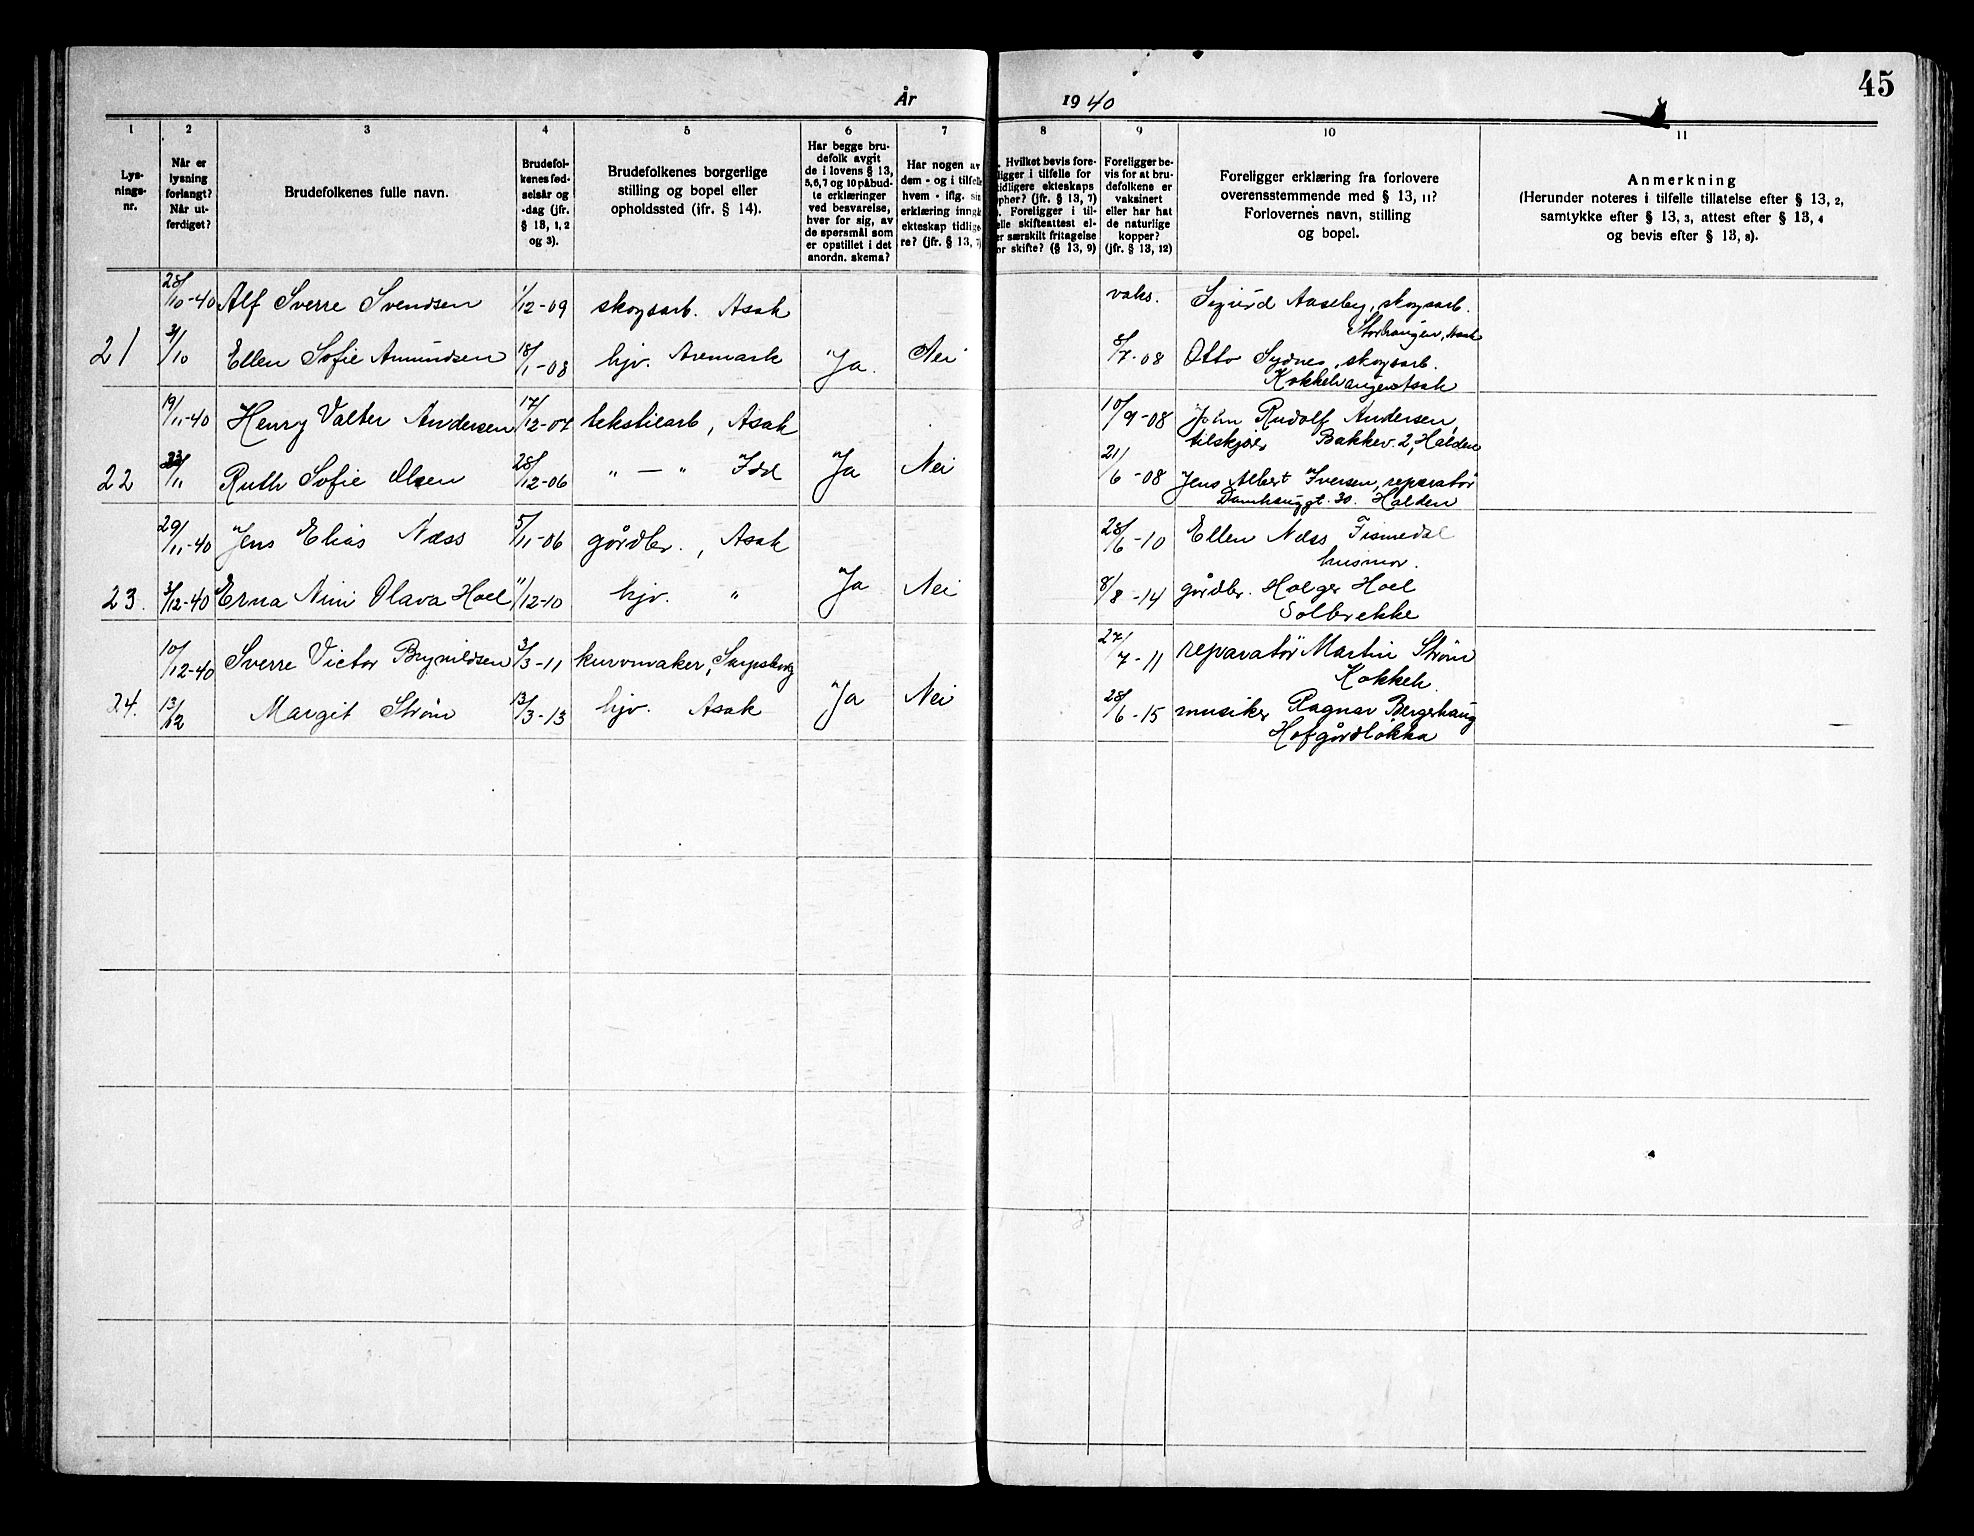 45
År 1940
1 2 3 4 5 6 7 8 9 10 11
Lys-
nings-
nr.
Når er
lysning
forlangt?
Når ut-
ferdiget?
Brudefolkenes fulle navn.
Brudefol-
kenes fød-
selsår og
-dag (jfr.
§ 13, 1, 2
og 3).
Brudefolkenes borgerlige
stilling og bopel eller
opholdssted (ifr. § 14).
Har begge bru-
defolk avgit
de i lovens § 13,
5, 6, 7 og 10 påbud-
te erklæringer
ved besvarelse,
hver for sig, av
de spørsmål som
er opstillet i det
anordn. skema?
Har nogen av
dem - og i tilfelle
hvem - iflg. sin
erklæring inngå
ekteskap tidlige
re? (jfr. § 13, 7)
. Hvilket bevis fore-
ligger i tilfelle for
tidligere ekteskaps
opher? (jfr. § 13, 7)
. Foreligger i til-
elle skifteattest el-
er særskilt fritagelse
or skifte? (§ 13, 9)
Foreligger be-
vis for at bru-
defolkene er
vaksinert
eller har hat
de naturlige
kopper?
(jfr. § 13, 12)
Foreligger erklæring fra forlovere
overensstemmende med § 13, 11?
Forlovernes navn, stilling
og bopel.
Anmerkning
(Herunder noteres i tilfelle tillatelse efter § 13, 2,
samtykke efter § 13, 3, attest efter § 13, 4
og bevis efter § 13, 8).
28/10-40 Alf Sverre Svendsen 1/12-09 skogsarb. Asak vaks. Sigurd Aaseby, skogsarb.
Storhaugen, Asak
21 31/10 Ellen Sofie Amundsen 18/1-08 hjv. Aremark Ja. Nei 8/7-08 Otto Sydnes, skogsarb.
Asak
19/11-40 Henry Valter Andersen 17/12-07 tekstilarb, Asak 10/9-08 John Rudolf Andersen,
tilskjær Bakkev. 2, Halden
22 23/11 Ruth Sofie Olsen 28/12-06 " — " Idd Ja Nei 21/6-08 Jens Albert Iversen, reparatør
Damhauggt. 30. Halden
29/11-40 Jens Elias Næss 5/11-06 gårdbr., Asak 28/6-10 Ellen Næss Fismedal
husmor.
23. 3/12-40 Erna Nini Olava Hoel 11/12-10 hjv. " Ja Nei 8/8-14 gårdbr. Holger Hoel
Solbrekke
10/12-40 Sverre Victor Brynildsen 3/3-11 kurvmaker, Sarpsborg 27/7-11 reparatør Martin Strøm
Kokkeh.
24. 13/12 Margit Strøm 13/3-13 hjv. Asak Ja Nei 28/6-15 musiker Ragnar Bergerhaug
Hofgårdløkka